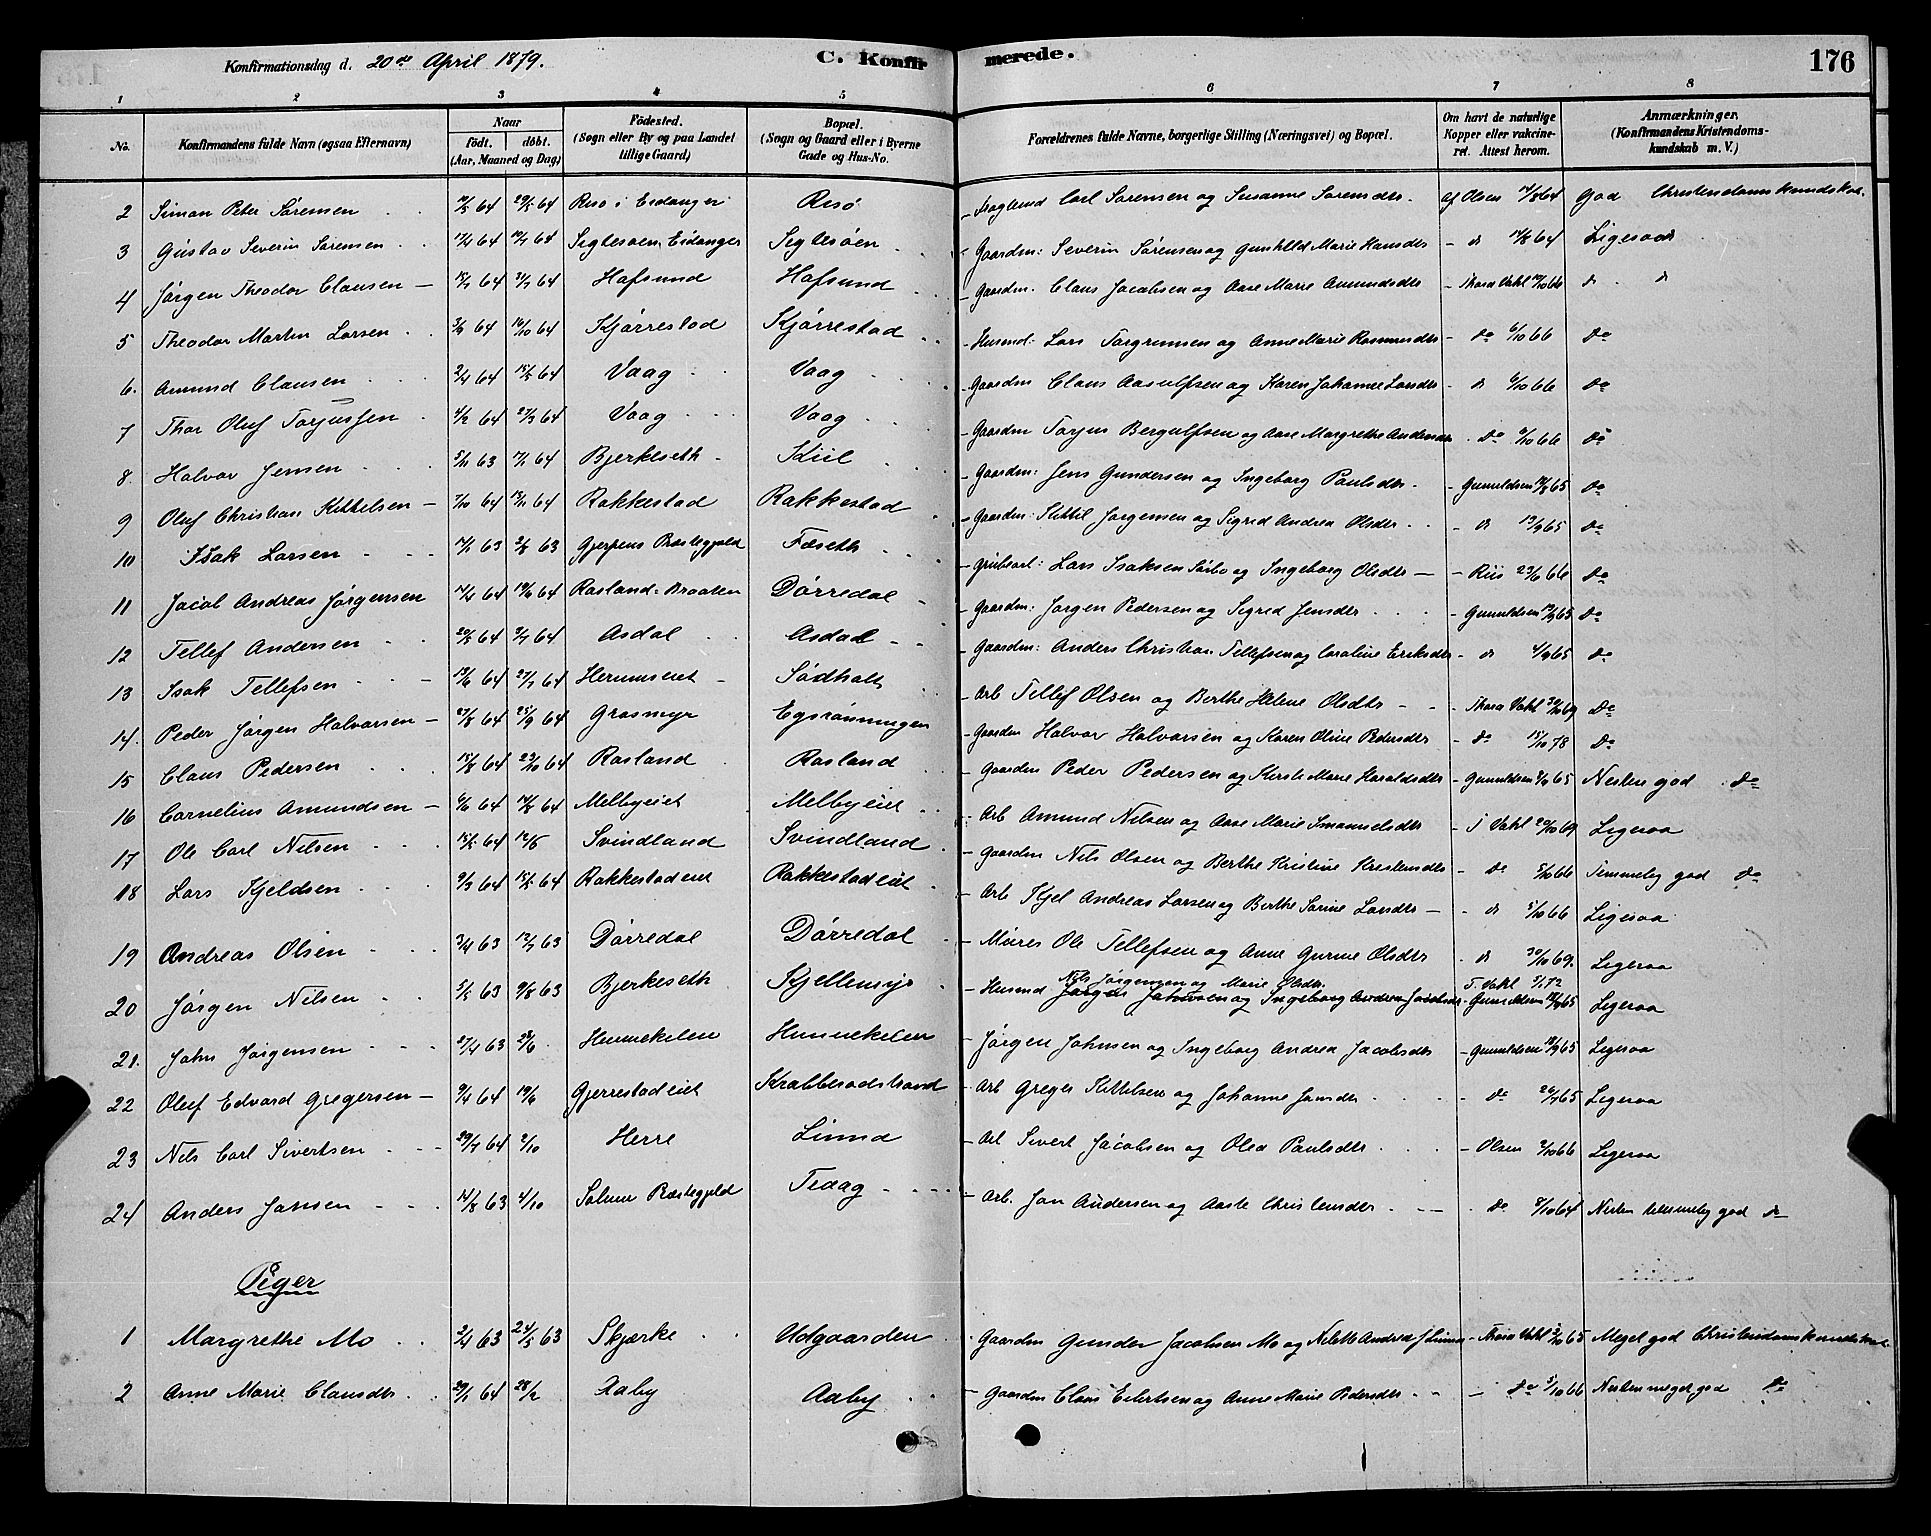 Konfirmationsdag d. 20de April 1879. C. Konfirmerede. 176
1 2 3 4 5 6 7 8
No. Konfirmandens fulde Navn (ogsaa Efternavn) Naar født. døbt. (Aar, Maaned og Dag) Fødested. (Sogn eller By og paa Landet tillige Gaard) Bopæl. (Sogn og Gaard eller i Byerne Gade og Hus-No. Forældrenes fulde Navne, borgerlige Stilling (Næringsvei) og Bopæl. Om havt de naturlige Kopper eller vakcineret. Attest herom. Anmærkninger. (Konfirmandens Kristendomskundskab m. V.)
2 Simon Peter Sørensen 64 29/5 64 Risø i Eidanger Risø Carl Sørensen og Susanne Sørensdtr. Olsen 64 God Christendomskundskab
3 Gustav Severin Sørensen 17/4 64 64 Siglesøen Eidanger Siglesøen Gaardm: Severin Sørensen og Gunhild Marie Hansdtr 64 Ligesaa
4 Jørgen Theodor Clausen 64 31/7 64 Hafsund Hafsund Gaardm. Claus Jacobsen og Aase Marie Amundsdtr Thora Vahl 66 do
5 Theodor Martin Larsen 3/9 64 16/10 64 Kjørrestad Kjørrestad Husmd: Lars Torgrimsen og Anne Marie Rasmusdtr do 6/10 66 do
6. Amund Clausen 2/4 64 15/5 64 Vaag Vaag Gaardm Claus Aasulfsen og Karen Johanne Larsdtr do 6/10 66 do
7 Thor Oluf Torjussen 4/2 64 27/3 64 Vaag Vaag Gaardm Torjus Bergulfsen og Aase Margrethe Andersdtr do 6/10 66 do
8. Halvor Jensen 5/11 63 64 Bjerkeseth Kiil Gaardm: Jens Gundersen og Ingeborg Paulsdtr. Gunuldsen 65 do
9 Oluf Christian Kittelsen 7/10 64 64 Rakkestad Rakkestad Gaardm: Kittil Jørgensen og Sigrid Andrea Olsdtr do 19/9 65 do
10 Isak Larsen 63 2/8 63 Gjerpens Præstegjeld Fæseth Grubearb: Lars Isaksen Sørbø og Ingeborg Olsdtr Riis 23/6 66 do
11 Jacob Andreas Jørgensen 64 19/6 64 Rosland-Braaten Dørredal Gaardm: Jørgen Pedersen og Sigrid Jensdtr Gunuldsen 65 do
12 Tellef Andersen 29/5 64 3/7 64 Asdal Asdal Gaardm: Anders Christian Tellefsen og Caroline Eriksdtr do 4/9 65 do
13 Isak Tellefsen 64 27/7 64 Herumseiet Sødholt Arb Tellef Olsen og Berthe Helene Olsdtr Thora Vahl 30/10 69 do
14. Peder Jørgen Halvorsen 27/8 64 25/9 64 Grasmyr Egsrønningen Gaardm Halvor Halvorsen og Karen Oline Pedersdtr do 15/10 78 do
15 Claus Pedersen 15/8 64 23/10 64 Rosland Rosland Gaardm Peder Pedersen og Kirsti Marie Haraldsdtr Gunuldsen 65 Næsten god do
16 Cornelius Amundsen 6/6 64 64 Melbyeiet Melbyeiet Arb Amund Nilsen og Aase Marie Imanuelsdtr T Vahl 69 Ligesaa
17 Ole Carl Nilsen 64 12/5 Svindland Svindland Gaardm Nils Olsen og Berthe Kristine Kristensdtr do 5/10 66 Temmelig god do
18 Lars Kjeldsen 9/3 64 15/5 64 Rakkestadeiet Rakkestadeiet Arb Kjel Andreas Larsen og Berthe Sørine Larsdtr do 5/10 66 Ligesaa
19 Andreas Olsen 3/4 63 63 Dørredal Dørredal Murer Ole Tellefsen og Anne Gurine Olsdtr do 30/10 69. Ligesaa
20 Jørgen Nilsen 5/5 63 9/8 63 Bjerkeseth Kjellemyr Husmd Nils Jørgensen og Marie Olsdtr Jørgen Johnsen og Ingeborg Andrea Jacobsdtr T. Vahl 72 Gunuldsen 65 Ligesaa
21. John Jørgensen 27/4 63 Hummekelen Hummekelen Jørgen Johnsen og Ingeborg Andrea Jacobsdtr Gunuldsen 65 Ligesaa
22 Oluf Edvard Gregersen 9/4 64 19/6 Gjerrestadeiet Krabberodstrand Arb Greger Kittelsen og Johanne Jensdtr do 65 Ligesaa
23 Nils Carl Sivertsen 29/7 64 2/10 Herre Linnd Arb Sivert Jacobsen og Olea Paulsdtr Olsen 2/10 66 Ligesaa
24 Anders Jansen 14/8 63 4/10 Solum Præstegjeld Traag Arb. Jan Andersen og Aaste Christensdtr do 8/10 64 Næsten temmelig god do
Piger
1 Margrethe Mo 3/4 63 24/5 63 Skjærke Udgaarden Gaardm Gunder Jacobsen Mo og Thora Vahl 65 Meget god Christendomskundskab
2 Anne Marie Clausdtr. 29/1 64 28/2 Aaby Aaby Gaardm Claus Eilertsen og Anne Marie Pedersdtr do 5/10 66 Næsten meget god do